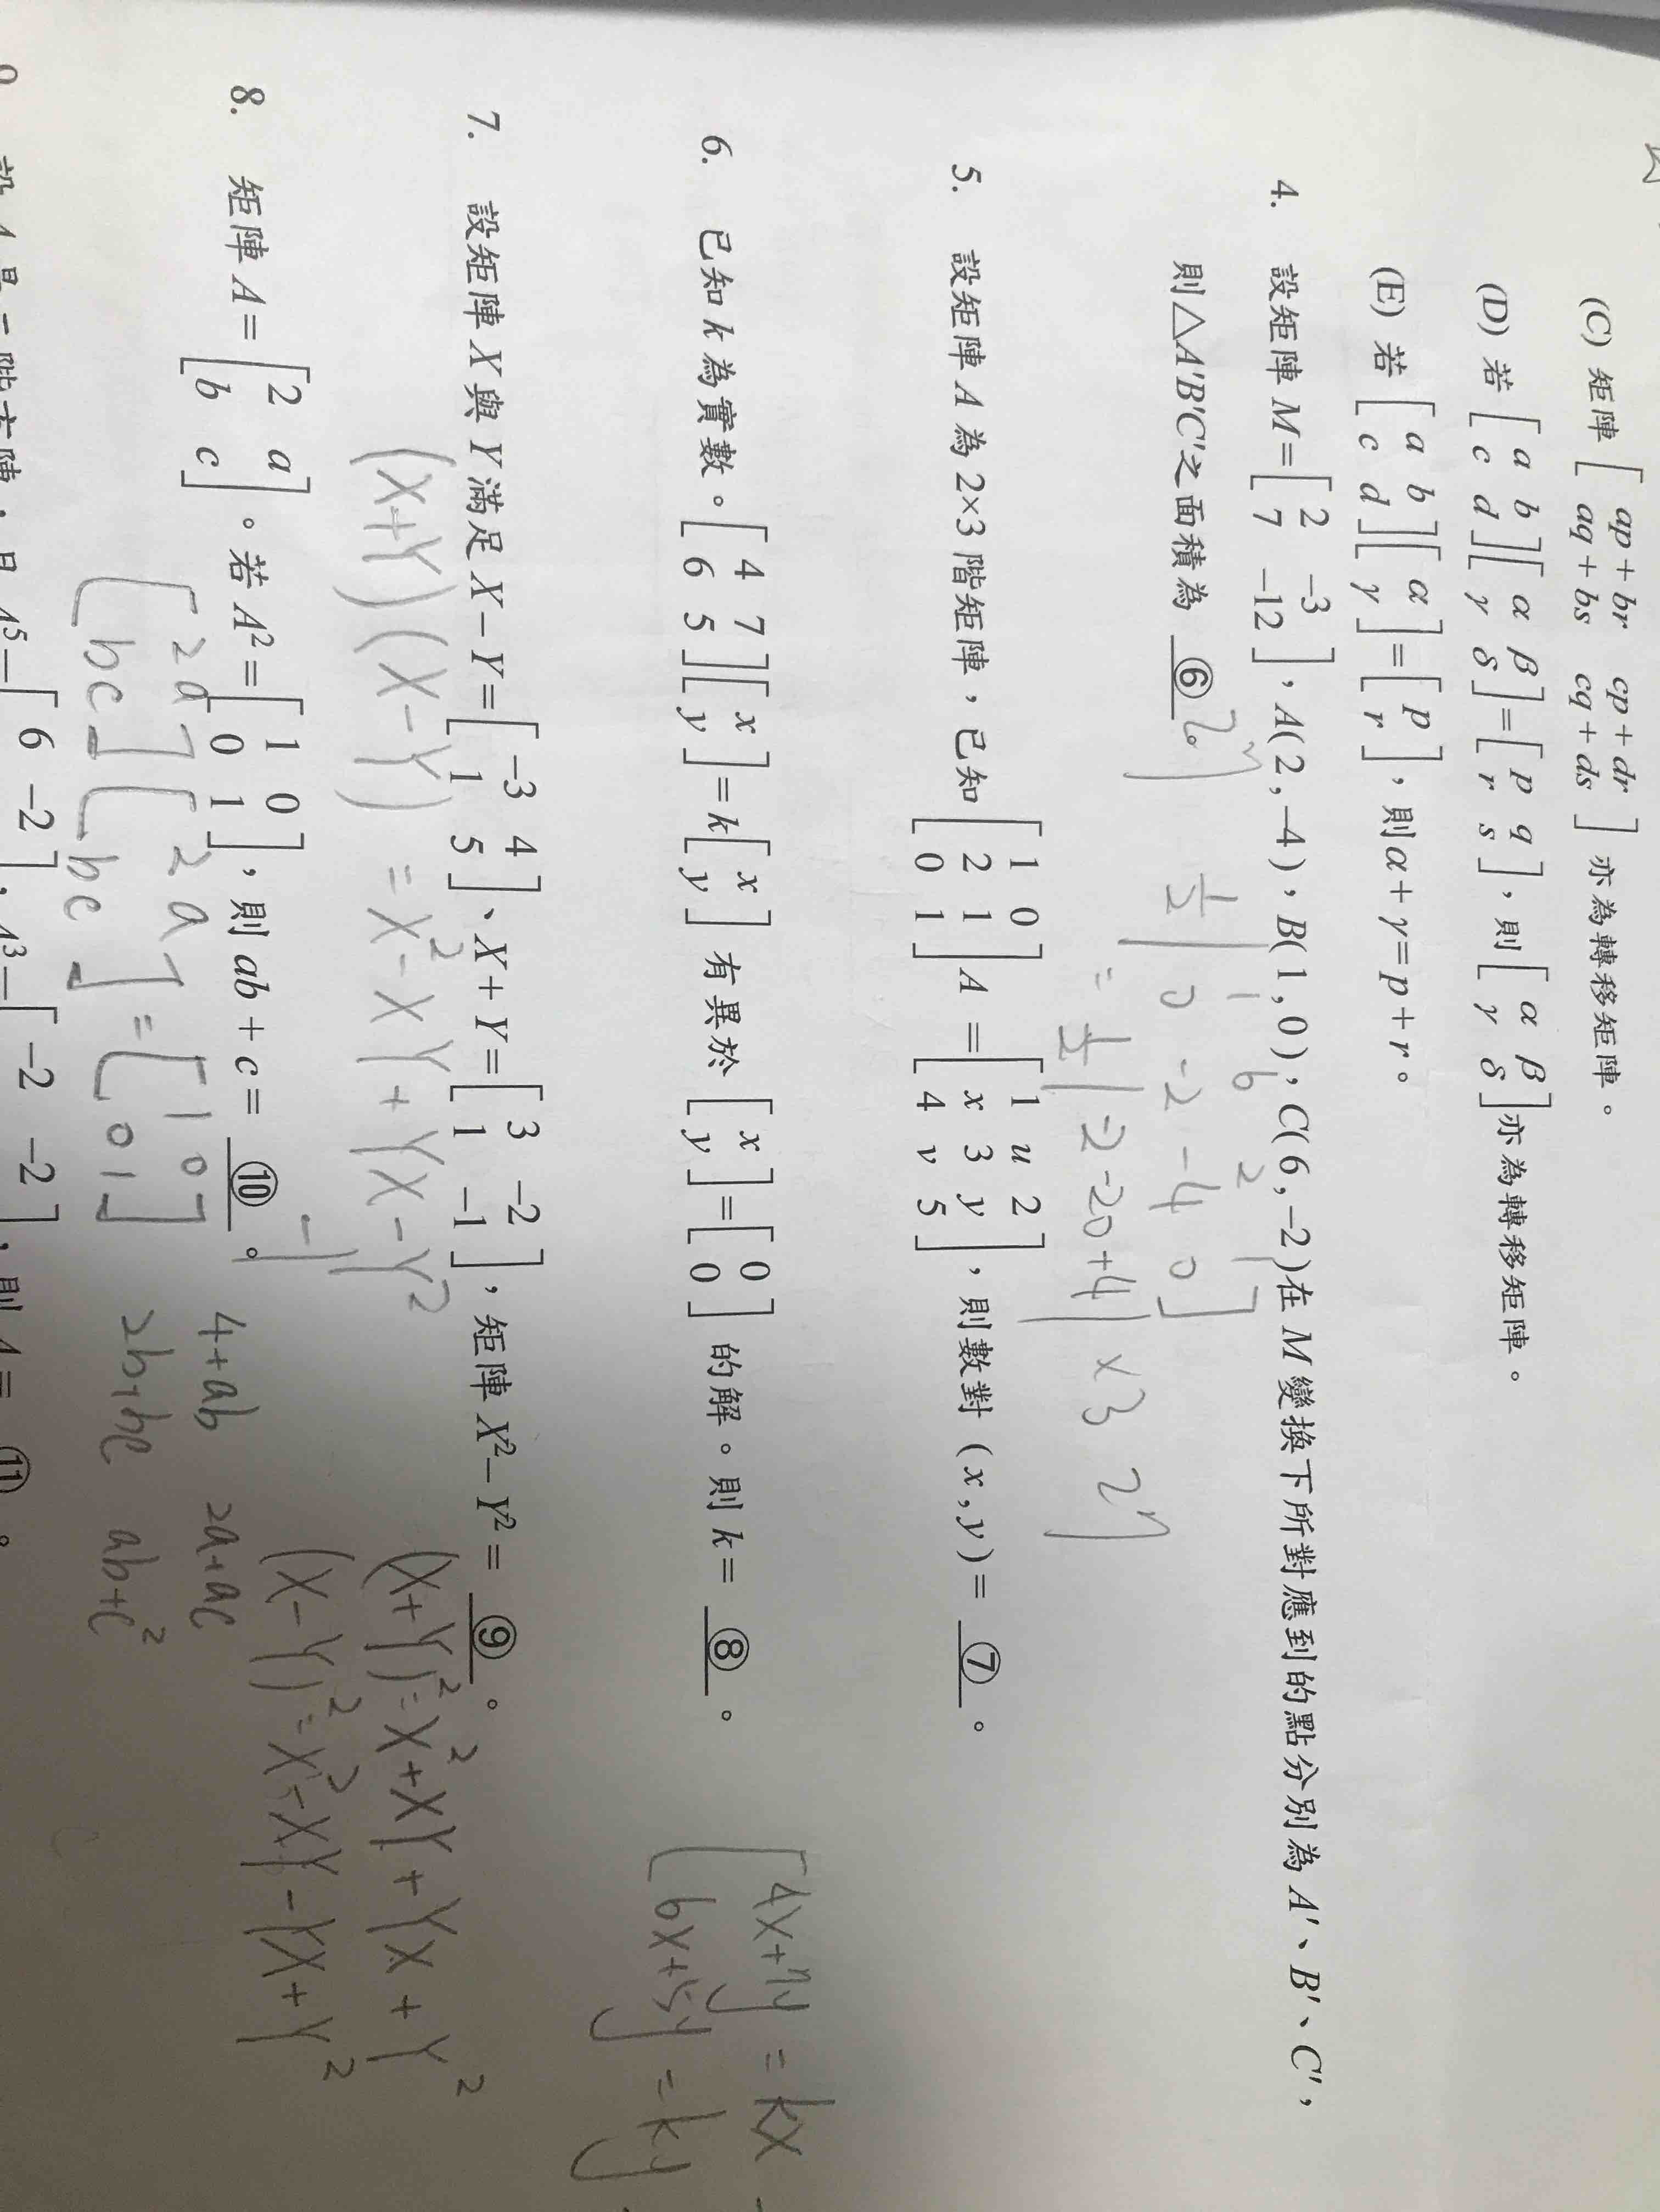 (C) 矩陣 [ap+br cp+dr
aq+bs cq+ds] 亦為轉移矩陣。
(D) 若 [a b
c d][α β
γ δ]=[p q
r s],則[α β
γ δ]亦為轉移矩陣。
(E) 若 [a b
c d][α
γ]=[p
r],則α+γ=p+r。
4. 設矩陣 M=[2 -3
7 -12],A(2,-4)、B(1,0)、C(6,-2)在 M 變換下所對應到的點分別為 A'、B'、C',
則△A'B'C'之面積為 ⑥
27
1/2 | 1 6 2 1
0 -2 -4 0 |
= 1/2 |-2-20+4| ×3 27
5. 設矩陣 A 為 2×3 階矩陣,已知 [1 0
2 1
0 1] A = [1 u 2
x 3 y
4 v 5],則數對 (x,y)= ⑦ 。
6. 已知 k 為實數。[4 7
6 5][x
y]=k[x
y] 有異於 [x
y]=[0
0] 的解。則 k= ⑧ 。
4x+7y = kx
6x+5y = ky
7. 設矩陣 X 與 Y 滿足 X-Y=[-3 4
1 5]、X+Y=[3 -2
1 -1],矩陣 X²-Y²= ⑨ 。
(X+Y)(X-Y) = X²-XY+YX-Y²
(X+Y)²=X²+XY+YX+Y²
(X-Y)²=X²-XY-YX+Y²
8. 矩陣 A=[2 a
b c]。若 A²=[1 0
0 1],則 ab+c= ⑩ 。
-1
[2 a
b c][2 a
b c]=[1 0
0 1]
4+ab 2a+ac
2b+bc ab+c²
6 -2
-2 -2
⑪ 。